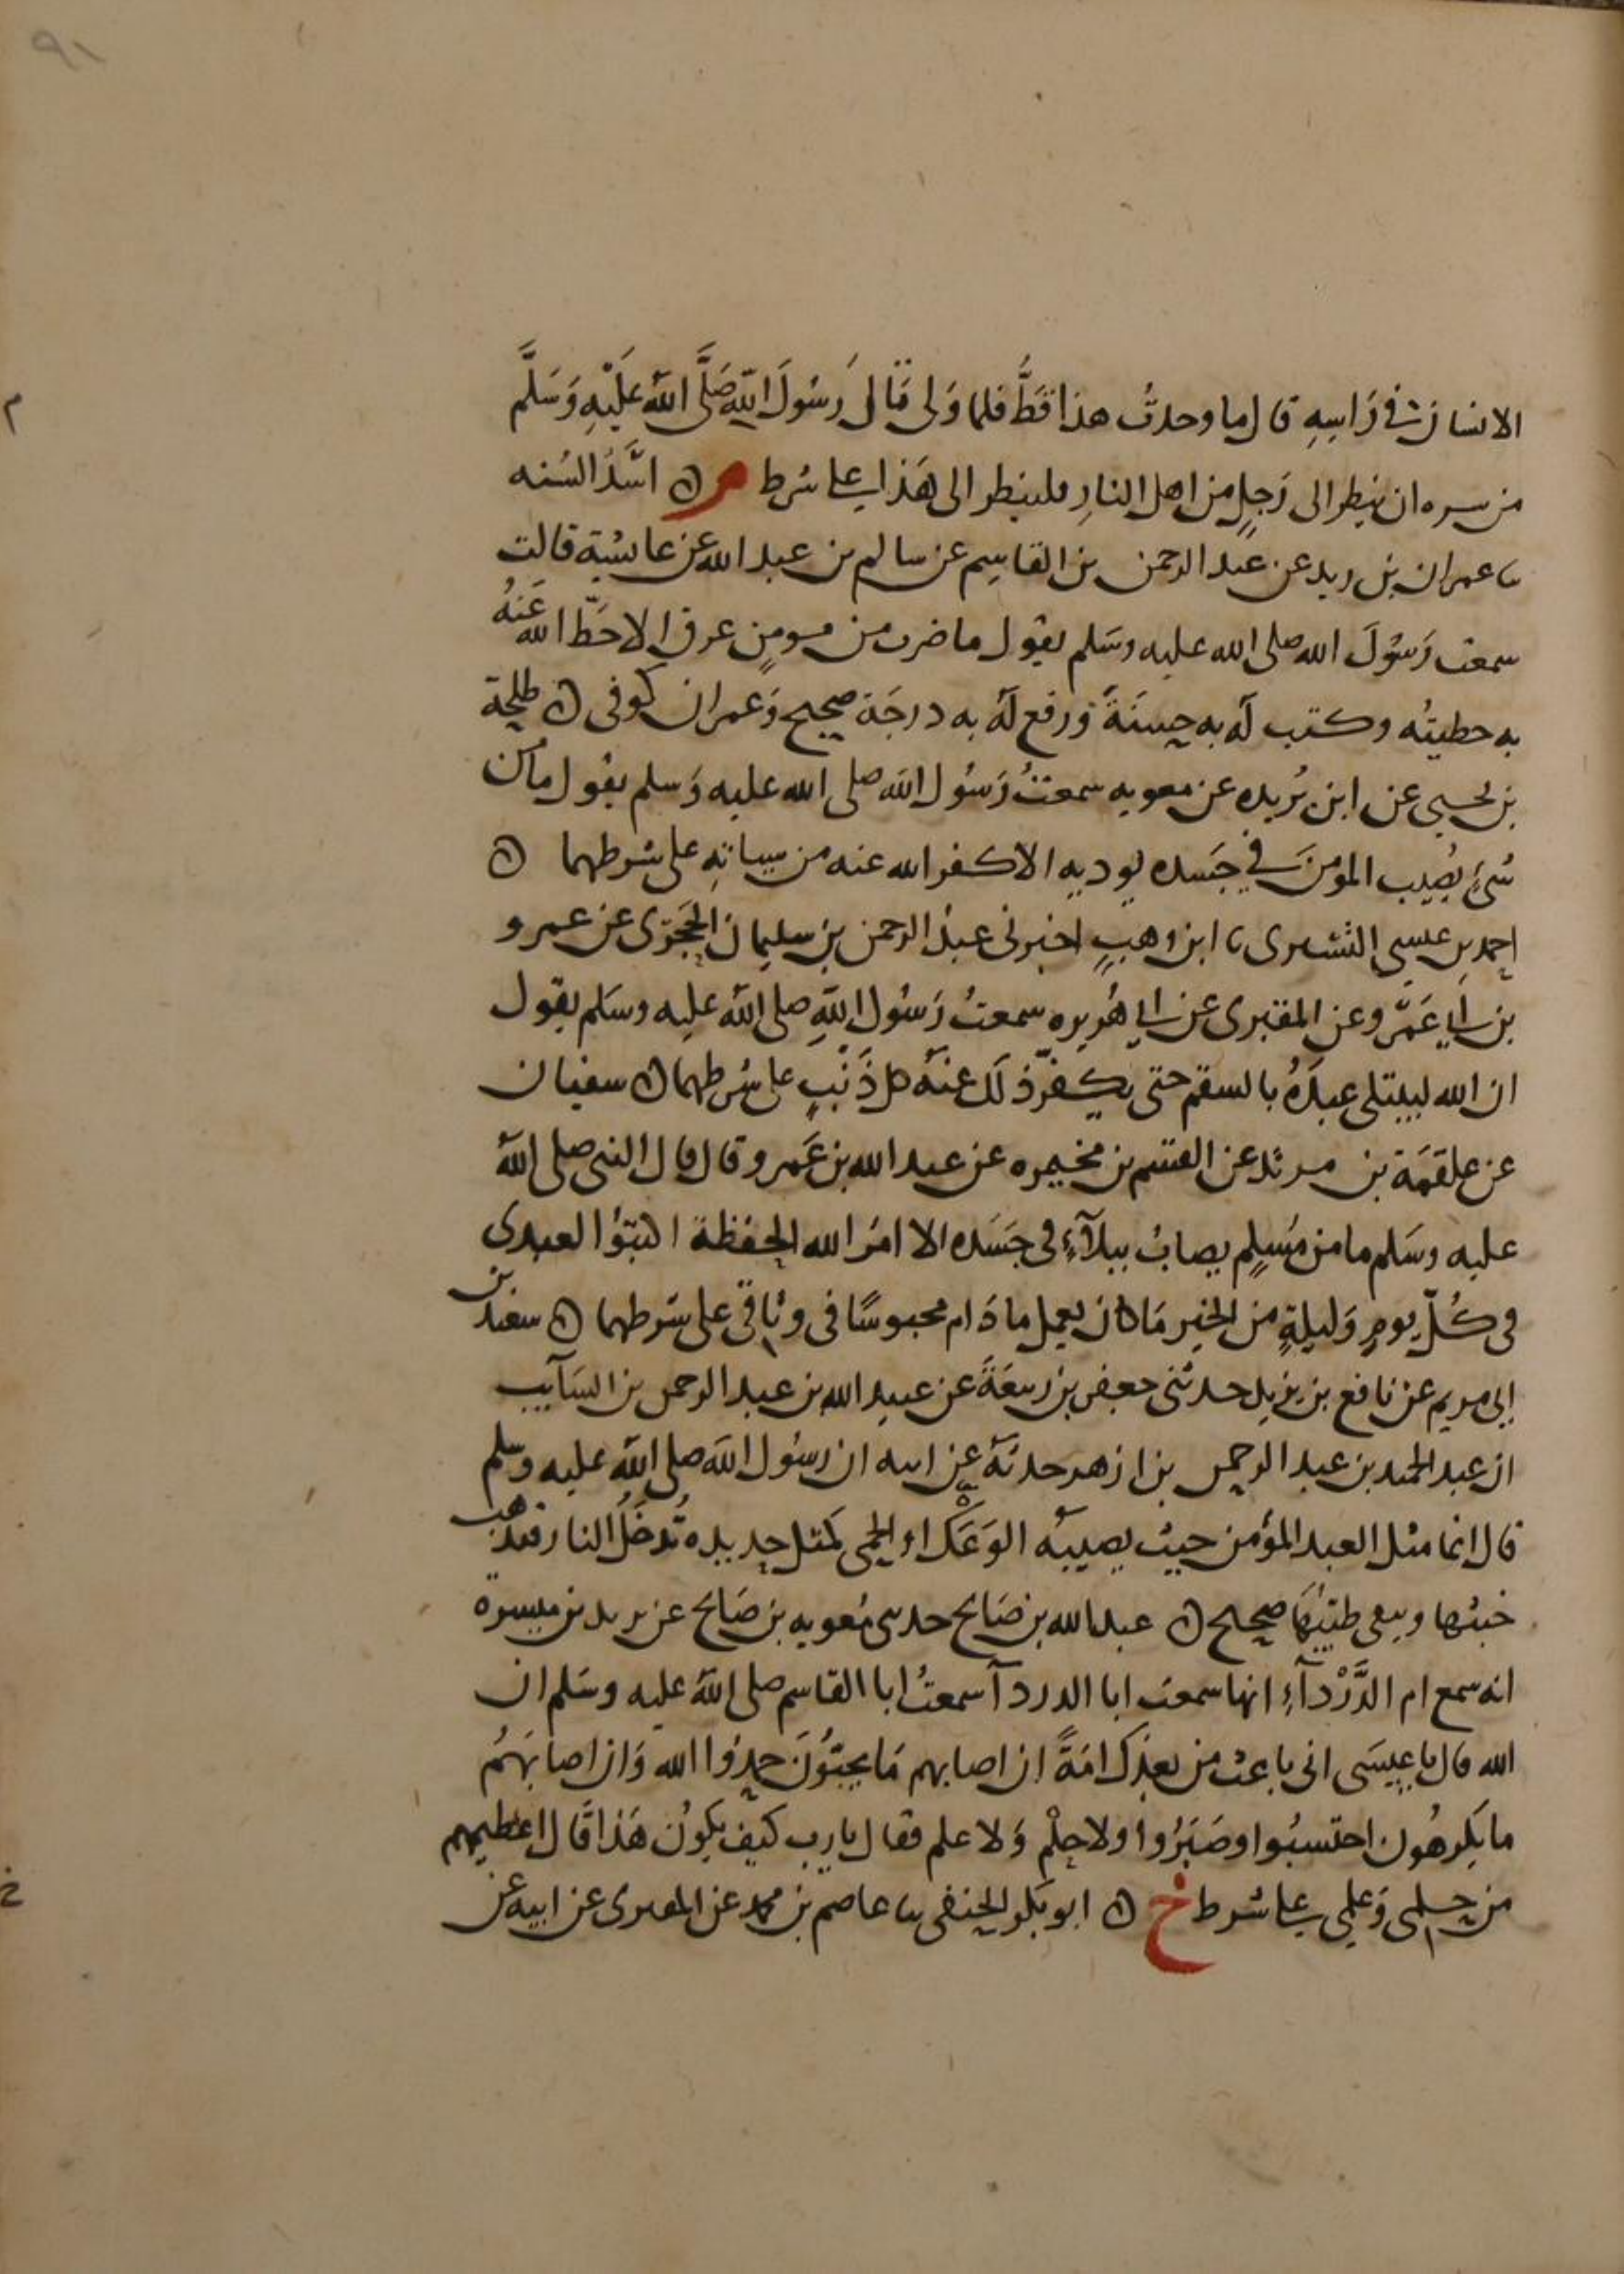 ٩١
الانسان في رَاسِهِ قال ما وجدتُ هذا قَطُّ فلما وَلى قَالَ رَسُولَ اللهِ صَلَّى اللهُ عَلَيْهِ وَسَلَّم
من سره ان ينظر الى رَجلٍ من اهل النارِ فلينظر الى هَذا على شرط م ۞ اسَدُ السُنه
ثنا عمران بن زيد عن عبد الرحمن بن القاسِم عن سالم بن عبد الله عن عائشة قالت
سمعت رَسُولَ الله صلى الله عليه وسَلم يقول ما ضرب من مومنٍ عرق الا حَطَّ الله عَنهُ
به خطيئه وكتب لهُ به حسنَةً ورفع لهُ به درجَة صحيح وَعمران كوفى ۞ طلحة
بن يحيى عن ابن بُريده عن معويه سمعتُ رَسُول الله صلى الله عليه وَسلم يقول ما من
شىءٍ يُصِيب المومنَ في جَسده يوديه الا كفر الله عنه من سيياتِهِ على شرطهما ۞
احمد بن عيسى التسترى ثنا ابن وهبٍ اخبرنى عبدُ الرحمن بن سليمان الحَجْرى عن عمرو
بن أبي عَمرو عن المقبرى عن أبي هُريره سمعتُ رَسُول اللهِ صلى اللهُ عليه وسَلم يقول
ان الله ليبتلى عبدَهُ بالسقم حتى يكفّر ذلك عنهُ كل ذَنْبٍ على شرطهما ۞ سفيان
عن علقمَة بن مرثد عن القسم بن مخيمره عن عبد الله بن عَمرو قال قال النبى صلى اللهُ
عليه وسَلم ما من مُسلِمٍ يصابُ ببلآءٍ فى جَسَده الا امرَ الله الحفظة اكتبُوا لعبدى
فى كُلّ يومٍ وَليلةٍ من الخير مَا كان يعمل ما دَام محبوسًا فى وثاقى على شرطهما ۞ سعيد بن
ابى مريم عن نافع بن يزيد حدثنى جعفر بن ربيعَةَ عن عبيد الله بن عبد الرحمن بن السَآيب
ان عبد الحميد بن عبد الرحمن بن ازهر حدثهُ عن ابيه ان رسُول الله صلى اللهُ عليه وسلم
قال انما مثل العبد المؤمن حين يصيبُه الوَعَك او الحمى كمثل حديده تُدخَلُ النار فيذهب
خبثها ويبقى طيبُهَا صحيح ۞ عبد الله بن صَالح حدثنى مُعويه بن صَالح عن يزيد بن ميسرة
انه سمع ام الدَّرْدآءِ انها سمعت ابا الدردآ سمعتُ ابا القاسم صلى اللهُ عليه وسَلم ان
الله قال يا عيسَى انى باعث من بعدك امَةً ان اصابهم مَا يحبّونَ حمدُوا الله وَان اصابَهُم
ما يكرهُون احتسبُوا وصَبَرُوا ولا حِلْم وَلا علم فقال يا رب كيف يكونُ هَذا قال اعطيهم
من حلمى وَعلمى على شرط خ ۞ ابو بكر الحنفى ثنا عاصم بن محمد عن المقبرى عن ابيه عن